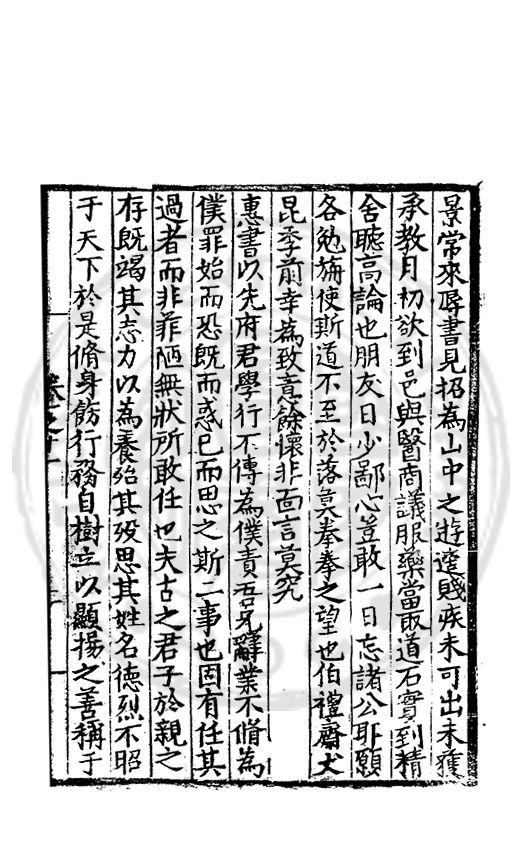 景常來辱書見招為山中之遊蹇賤疾未可出未獲
承教月初欲到邑與醫商議服藥當取道石實到精
舍聽高論也朋友日少鄙心豈敢一日忘諸公耶願
各勉旃使斯道不至於落莫拳拳之望也伯禮齋犬
昆季前幸為致意餘懷非面言莫究
惠書以先府君學行不傳為僕責吾兄辭業不脩為
僕罪始而恐既而惑已而思之斯二事也固有任其
過者而非菲陋無狀所敢任也夫古之君子於親之
存既竭其志力以為養殆其歿思其姓名德烈不昭
于天下於是脩身飭行務自樹立以顯揚之善稱于
卷之十一